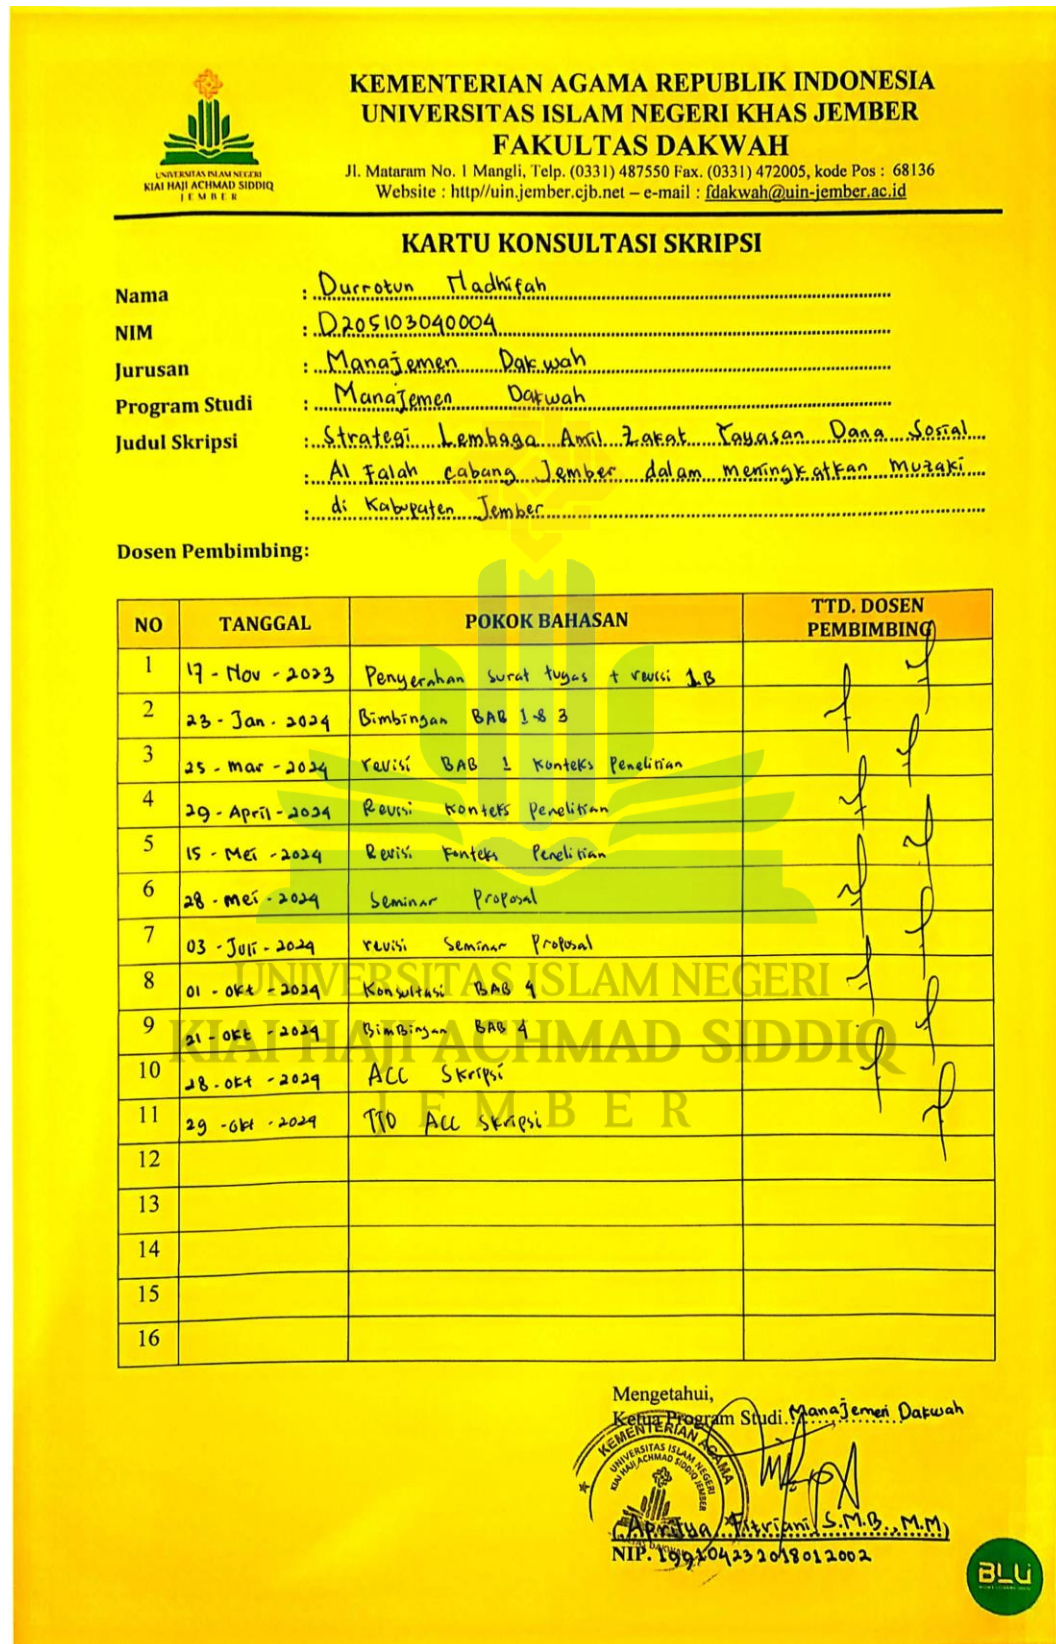 KEMENTERIAN AGAMA REPUBLIK INDONESIA
UNIVERSITAS ISLAM NEGERI KHAS JEMBER
FAKULTAS DAKWAH
Jl. Mataram No. 1 Mangli, Telp. (0331) 487550 Fax. (0331) 472005, kode Pos : 68136
Website : http//uin.jember.cjb.net – e-mail : fdakwah@uin-jember.ac.id
UNIVERSITAS ISLAM NEGERI
KIAI HAJI ACHMAD SIDDIQ
JEMBER
KARTU KONSULTASI SKRIPSI
Nama : Durrotun Madhifah
NIM : D205103040004
Jurusan : Manajemen Dakwah
Program Studi : Manajemen Dakwah
Judul Skripsi : Strategi Lembaga Amil Zakat Yayasan Dana Sosial
: Al Falah cabang Jember dalam meningkatkan muzaki
: di Kabupaten Jember
Dosen Pembimbing:
NO TANGGAL POKOK BAHASAN TTD. DOSEN PEMBIMBING
1 17 - Nov - 2023 Penyerahan surat tugas + revisi 1.B
2 23 - Jan - 2024 Bimbingan BAB 1-8 3
3 25 - mar - 2024 revisi BAB 1 Konteks Penelitian
4 29 - April - 2024 Revisi Konteks Penelitian
5 15 - Mei - 2024 Revisi Konteks Penelitian
6 28 - mei - 2024 Seminar Proposal
7 03 - Juli - 2024 revisi Seminar Proposal
8 01 - Okt - 2024 Konsultasi BAB 4
9 21 - Okt - 2024 Bimbingan BAB 4
10 28 - Okt - 2024 ACC Skripsi
11 29 - Okt - 2024 TTD ACC Skripsi
12
13
14
15
16
UNIVERSITAS ISLAM NEGERI
KIAI HAJI ACHMAD SIDDIQ
JEMBER
Mengetahui,
Ketua Program Studi Manajemen Dakwah
KEMENTERIAN AGAMA
UNIVERSITAS ISLAM NEGERI
KIAI HAJI ACHMAD SIDDIQ JEMBER
(Aprilya Fitriani, S.M.B., M.M)
NIP. 199104232018012002
BLU